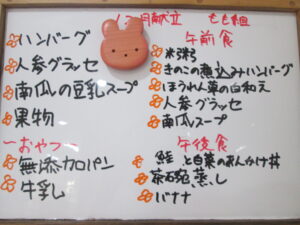 月献立 もも組
ハンバーグ
人参グラッセ
南瓜の豆乳スープ
果物
〜おやつ〜
無添加パン
牛乳
午前食
米粥
きのこの煮込みハンバーグ
ほうれん草の白和え
人参グラッセ
南瓜スープ
午後食
鮭と白菜のあんかけ丼
茶碗蒸し
バナナ